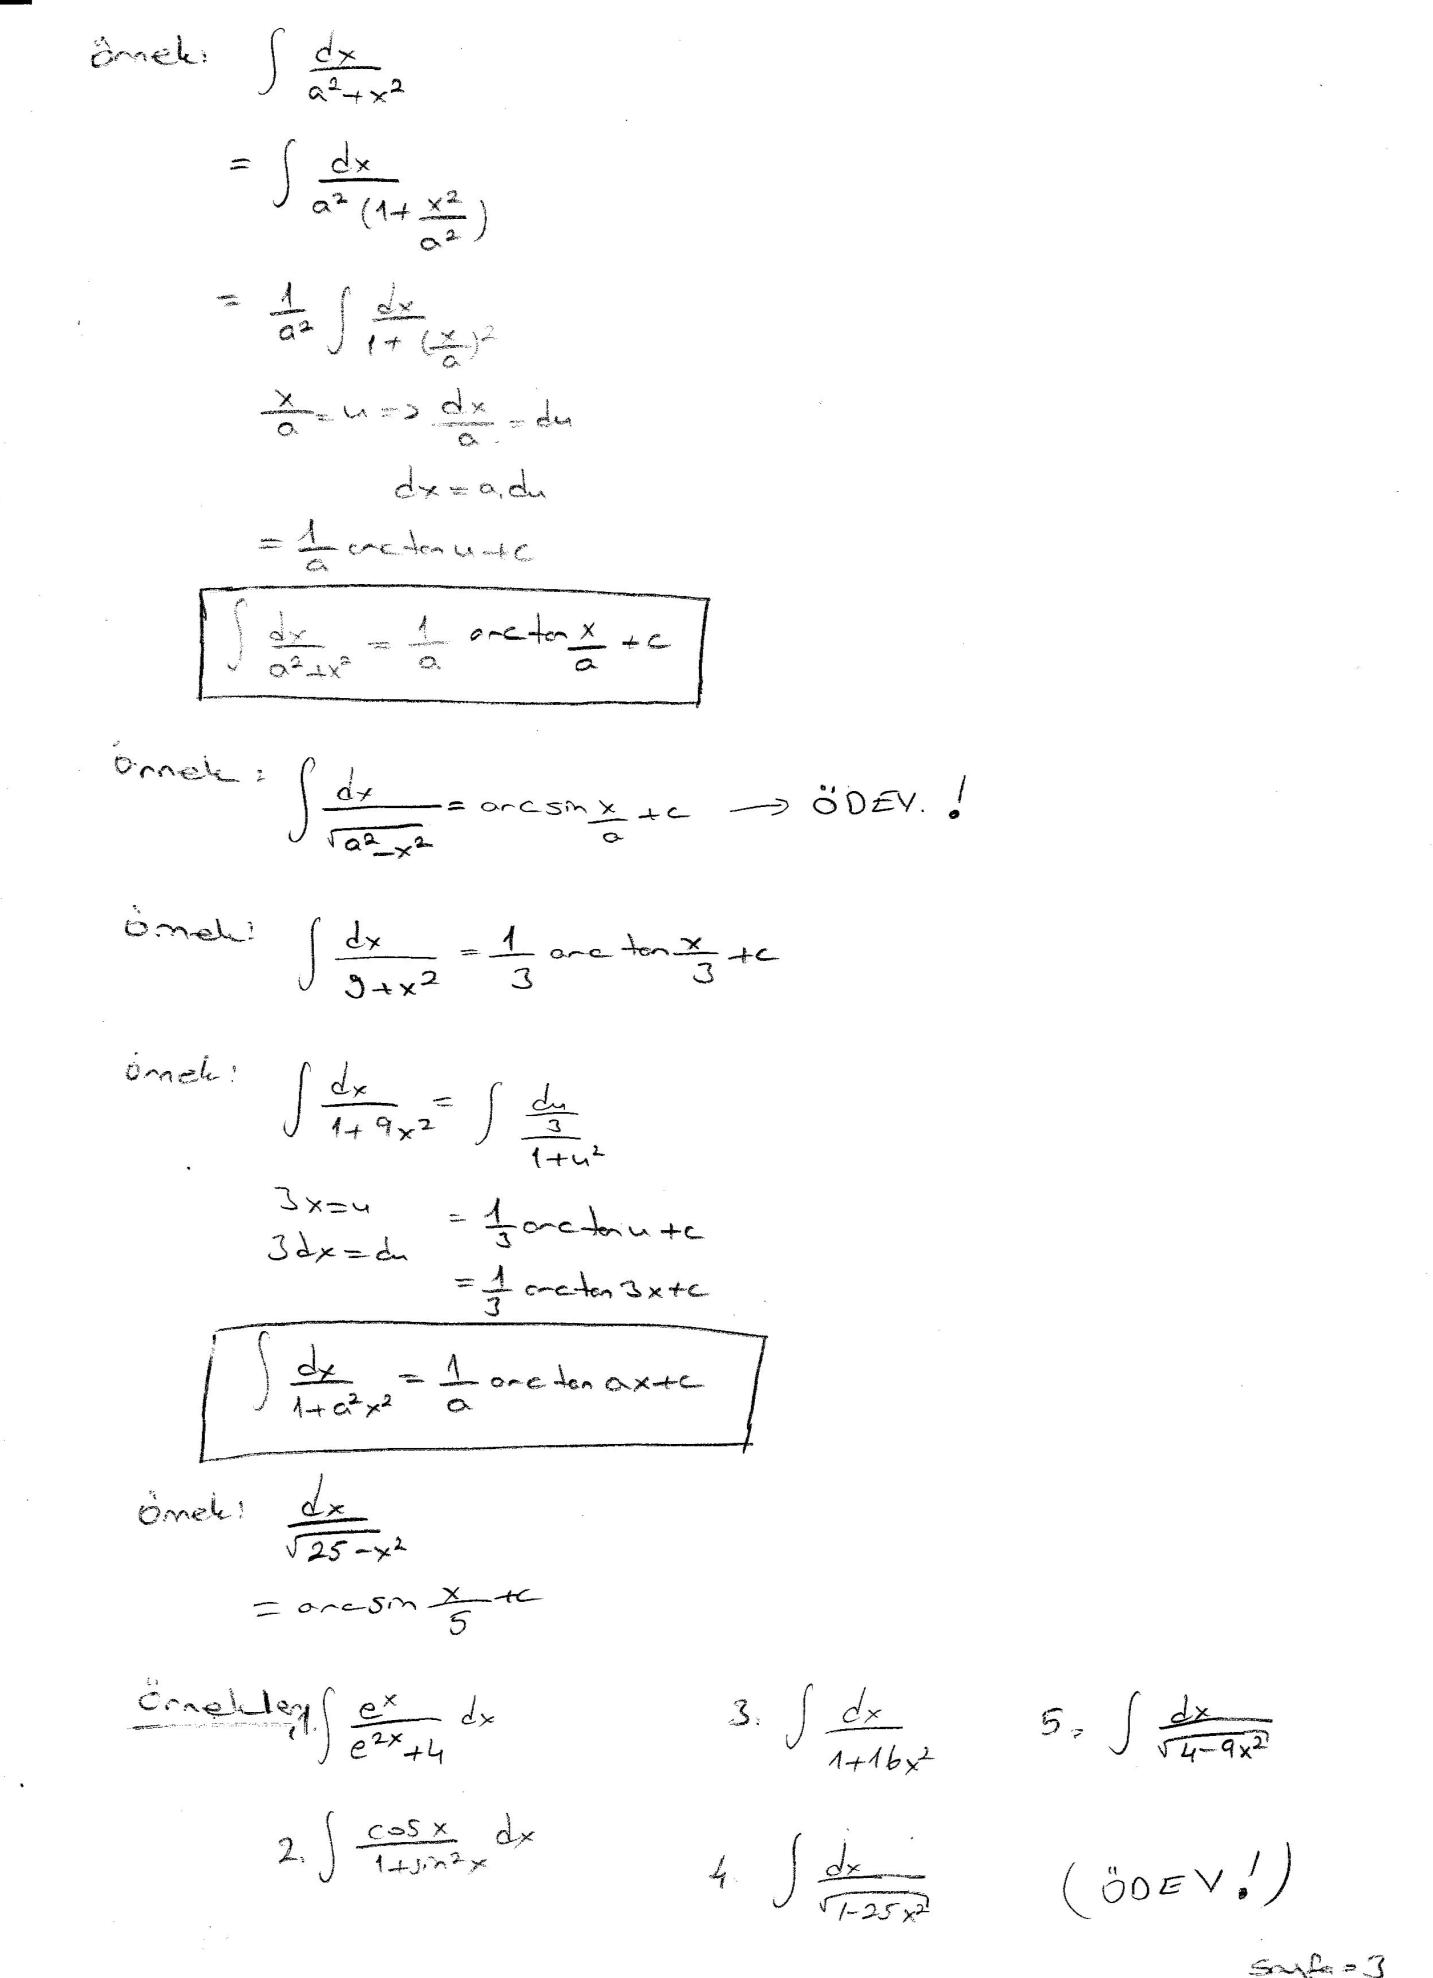 Örnek: ∫ dx / (a²+x²)
= ∫ dx / (a² (1 + x²/a²))
= 1/a² ∫ dx / (1 + (x/a)²)
x/a = u => dx/a = du
dx = a.du
= 1/a arctan u + c
∫ dx / (a²+x²) = 1/a arctan x/a + c
Örnek: ∫ dx / √(a²-x²) = arcsin x/a + c → ÖDEV.!
Örnek: ∫ dx / (9+x²) = 1/3 arc tan x/3 + c
Örnek: ∫ dx / (1+9x²) = ∫ (du/3) / (1+u²)
3x=u = 1/3 arctan u + c
3dx=du
= 1/3 arctan 3x + c
∫ dx / (1+a²x²) = 1/a arctan ax + c
Örnek: dx / √(25-x²)
= arcsin x/5 + c
Örnekler, 1. ∫ eˣ / (e²ˣ+4) dx 3. ∫ dx / (1+16x²) 5. ∫ dx / √(4-9x²)
2. ∫ cosx / (1+sin²x) dx 4. ∫ dx / √(1-25x²) (ÖDEV!)
sayfa = 3